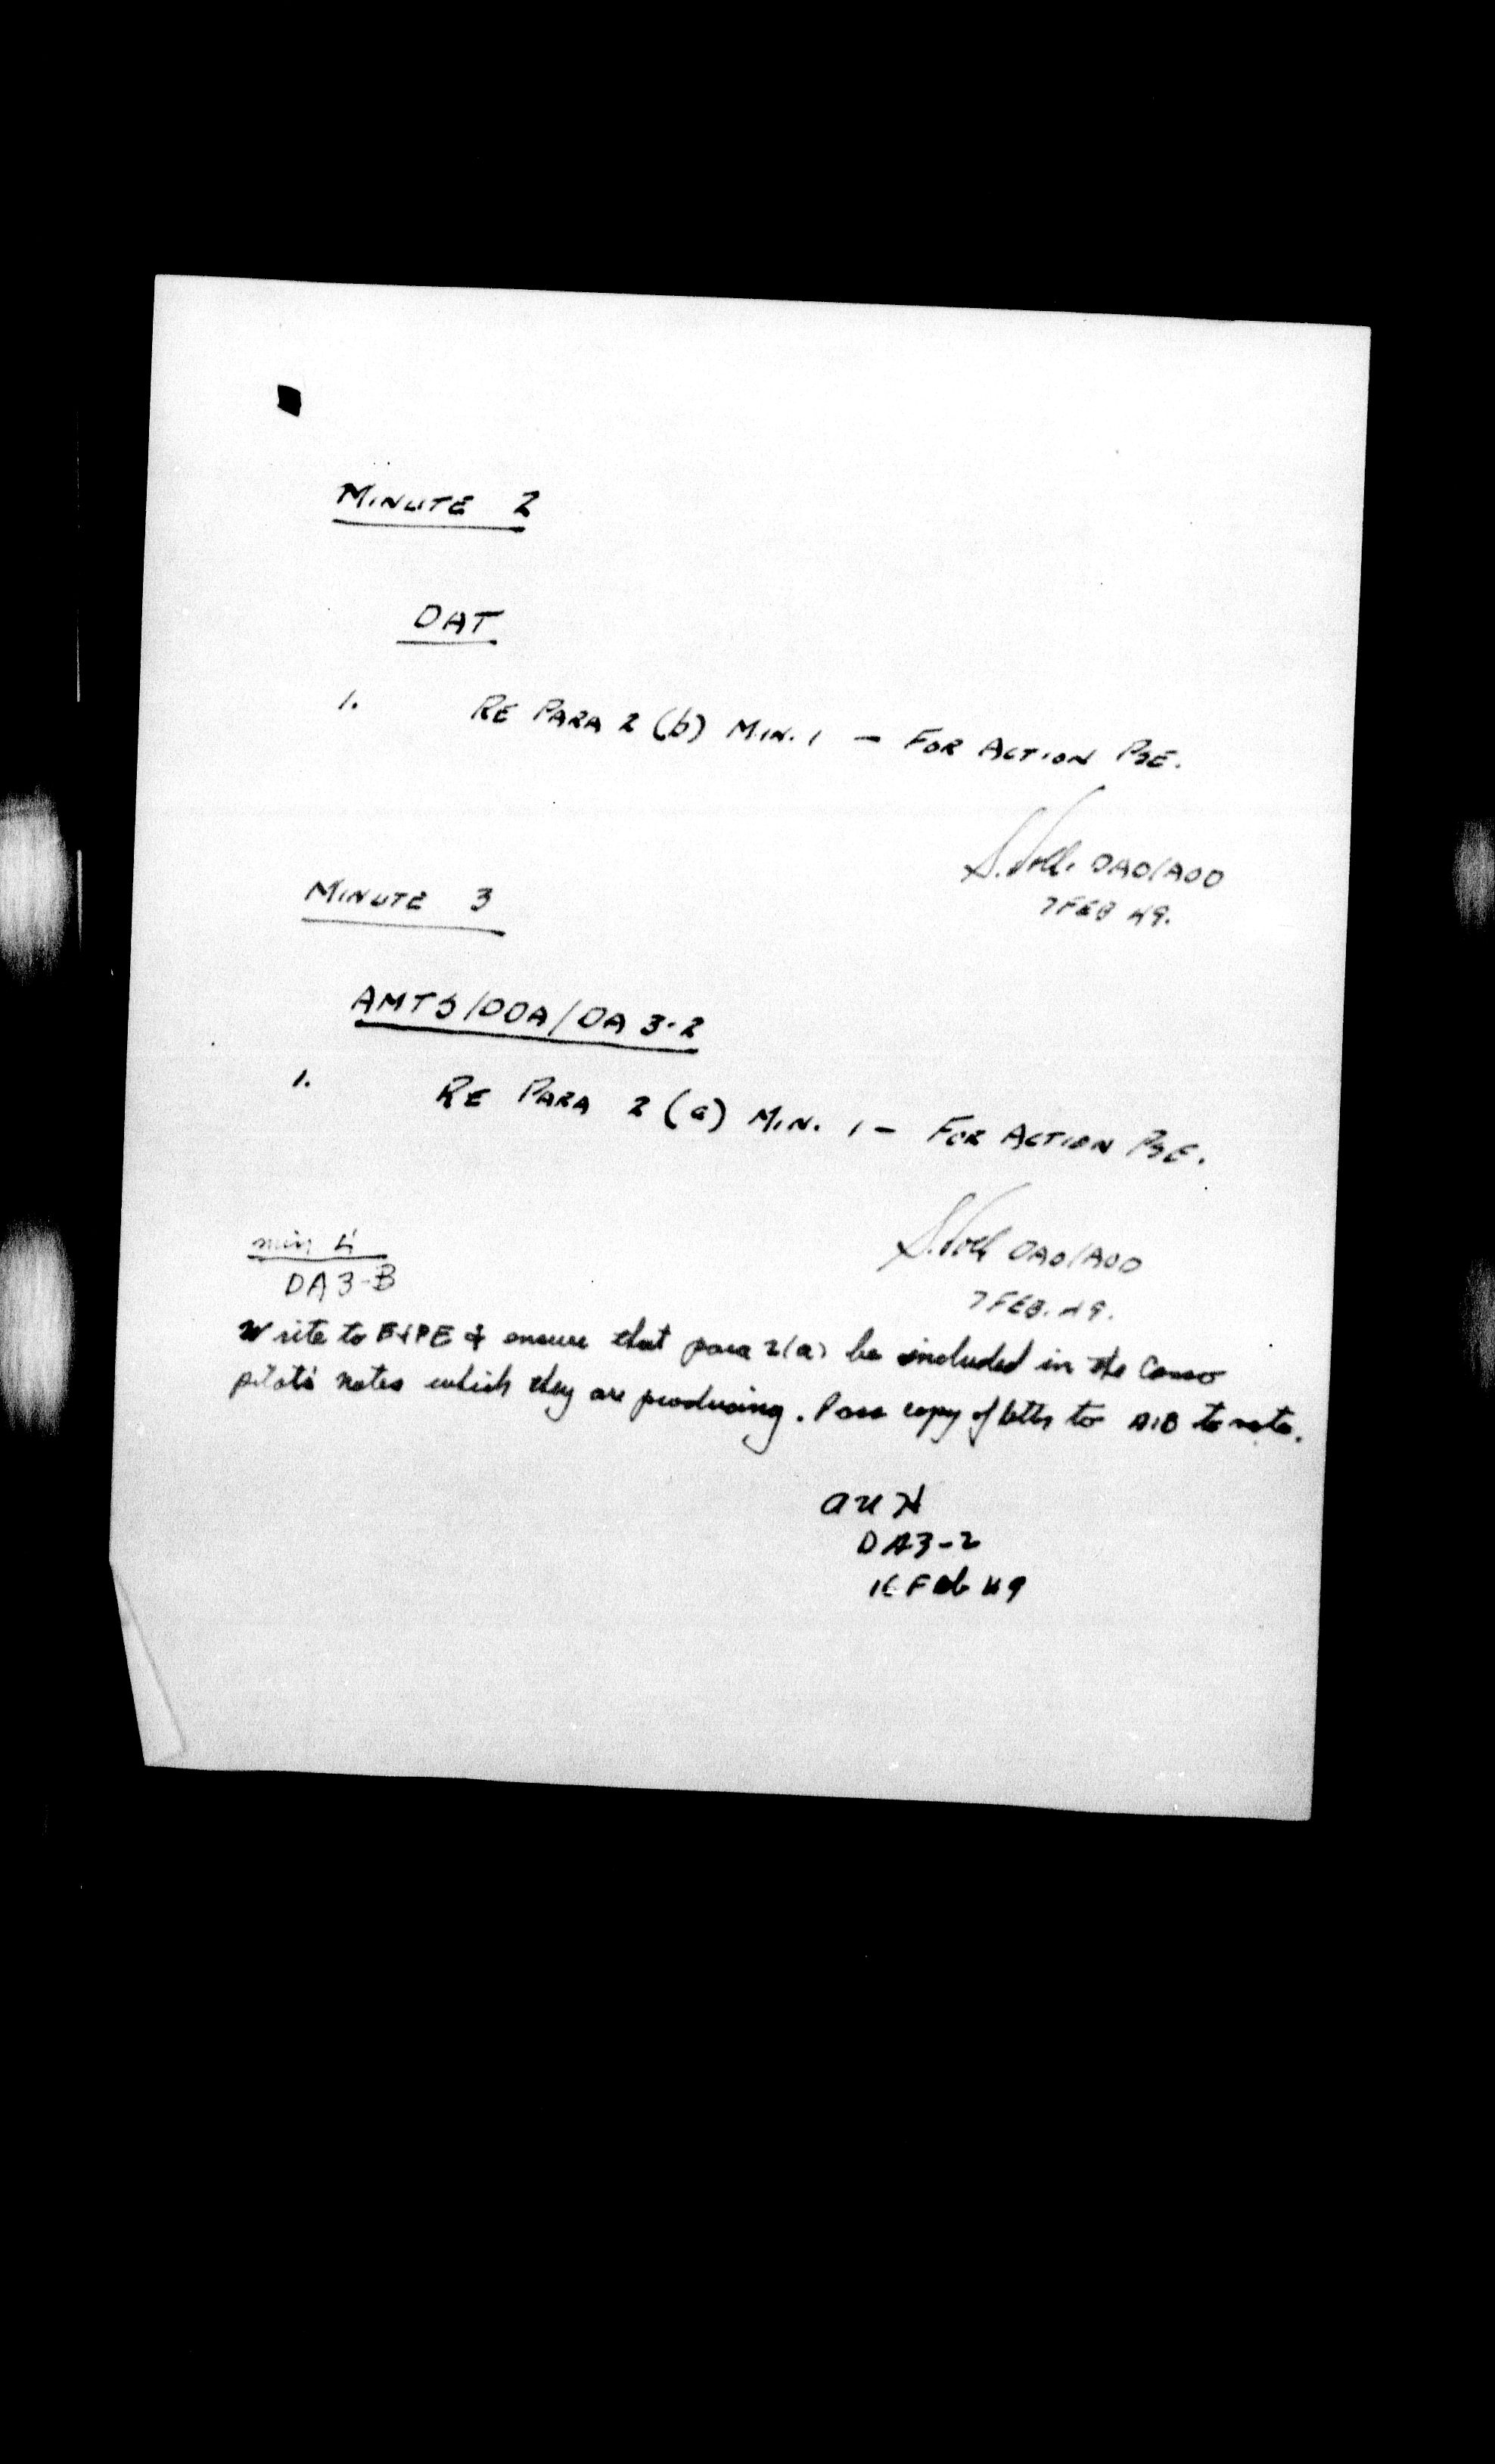 MINUTE 2
DAT
1. RE PARA 2 (b) MIN. 1 — FOR ACTION PSE.
DAO/AOD
7 FEB 49.
MINUTE 3
AMTS/DOA/DA 3-2
1. RE PARA 2 (a) MIN. 1 — FOR ACTION PSE.
DAO/AOD
7 FEB. 49.
min 4
DA3-B
Write to E&PE & ensure that para 2(a) be included in the Canso
pilots notes which they are producing. Pass copy of letter to AIB to note.
DA3-2
Feb 49